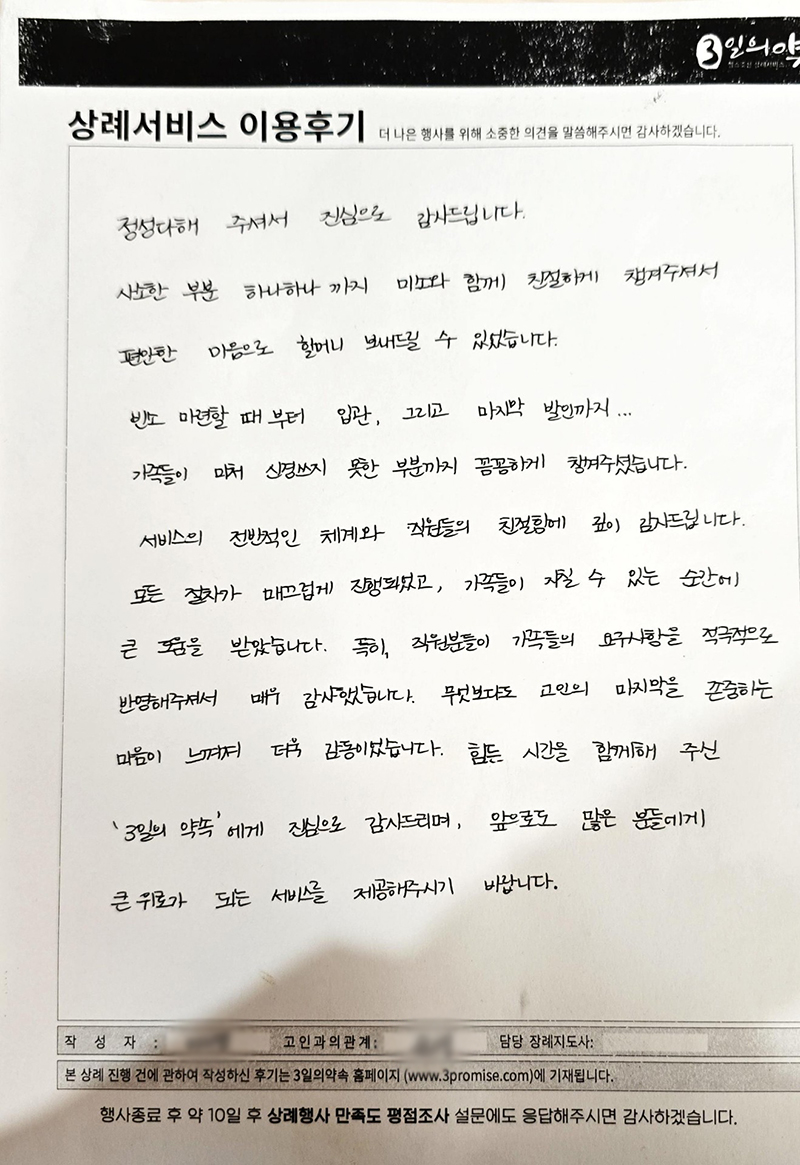 3일의약
상례서비스 이용후기 더 나은 행사를 위해 소중한 의견을 말씀해주시면 감사하겠습니다.
정성다해 주셔서 진심으로 감사드립니다.
사소한 부분 하나하나 까지 미소와 함께 친절하게 챙겨주셔서
편안한 마음으로 할머니 보내드릴 수 있었습니다.
빈소 마련할 때 부터 입관, 그리고 마지막 발인까지...
가족들이 미처 신경쓰지 못한 부분까지 꼼꼼하게 챙겨주셨습니다.
서비스의 전반적인 체계와 직원들의 친절함에 깊이 감사드립니다.
모든 절차가 매끄럽게 진행되었고, 가족들이 지칠 수 있는 순간에
큰 도움을 받았습니다. 특히, 직원분들이 가족들의 요구사항을 적극적으로
반영해주셔서 매우 감사했습니다. 무엇보다도 고인의 마지막을 존중하는
마음이 느껴져 더욱 감동이었습니다. 힘든 시간을 함께해 주신
'3일의 약속'에게 진심으로 감사드리며, 앞으로도 많은 분들에게
큰 위로가 되는 서비스를 제공해주시기 바랍니다.
작 성 자 : 고인과의관계: 담당 장례지도사:
본 상례 진행 건에 관하여 작성하신 후기는 3일의약속 홈페이지 (www.3promise.com)에 기재됩니다.
행사종료 후 약 10일 후 상례행사 만족도 평점조사 설문에도 응답해주시면 감사하겠습니다.